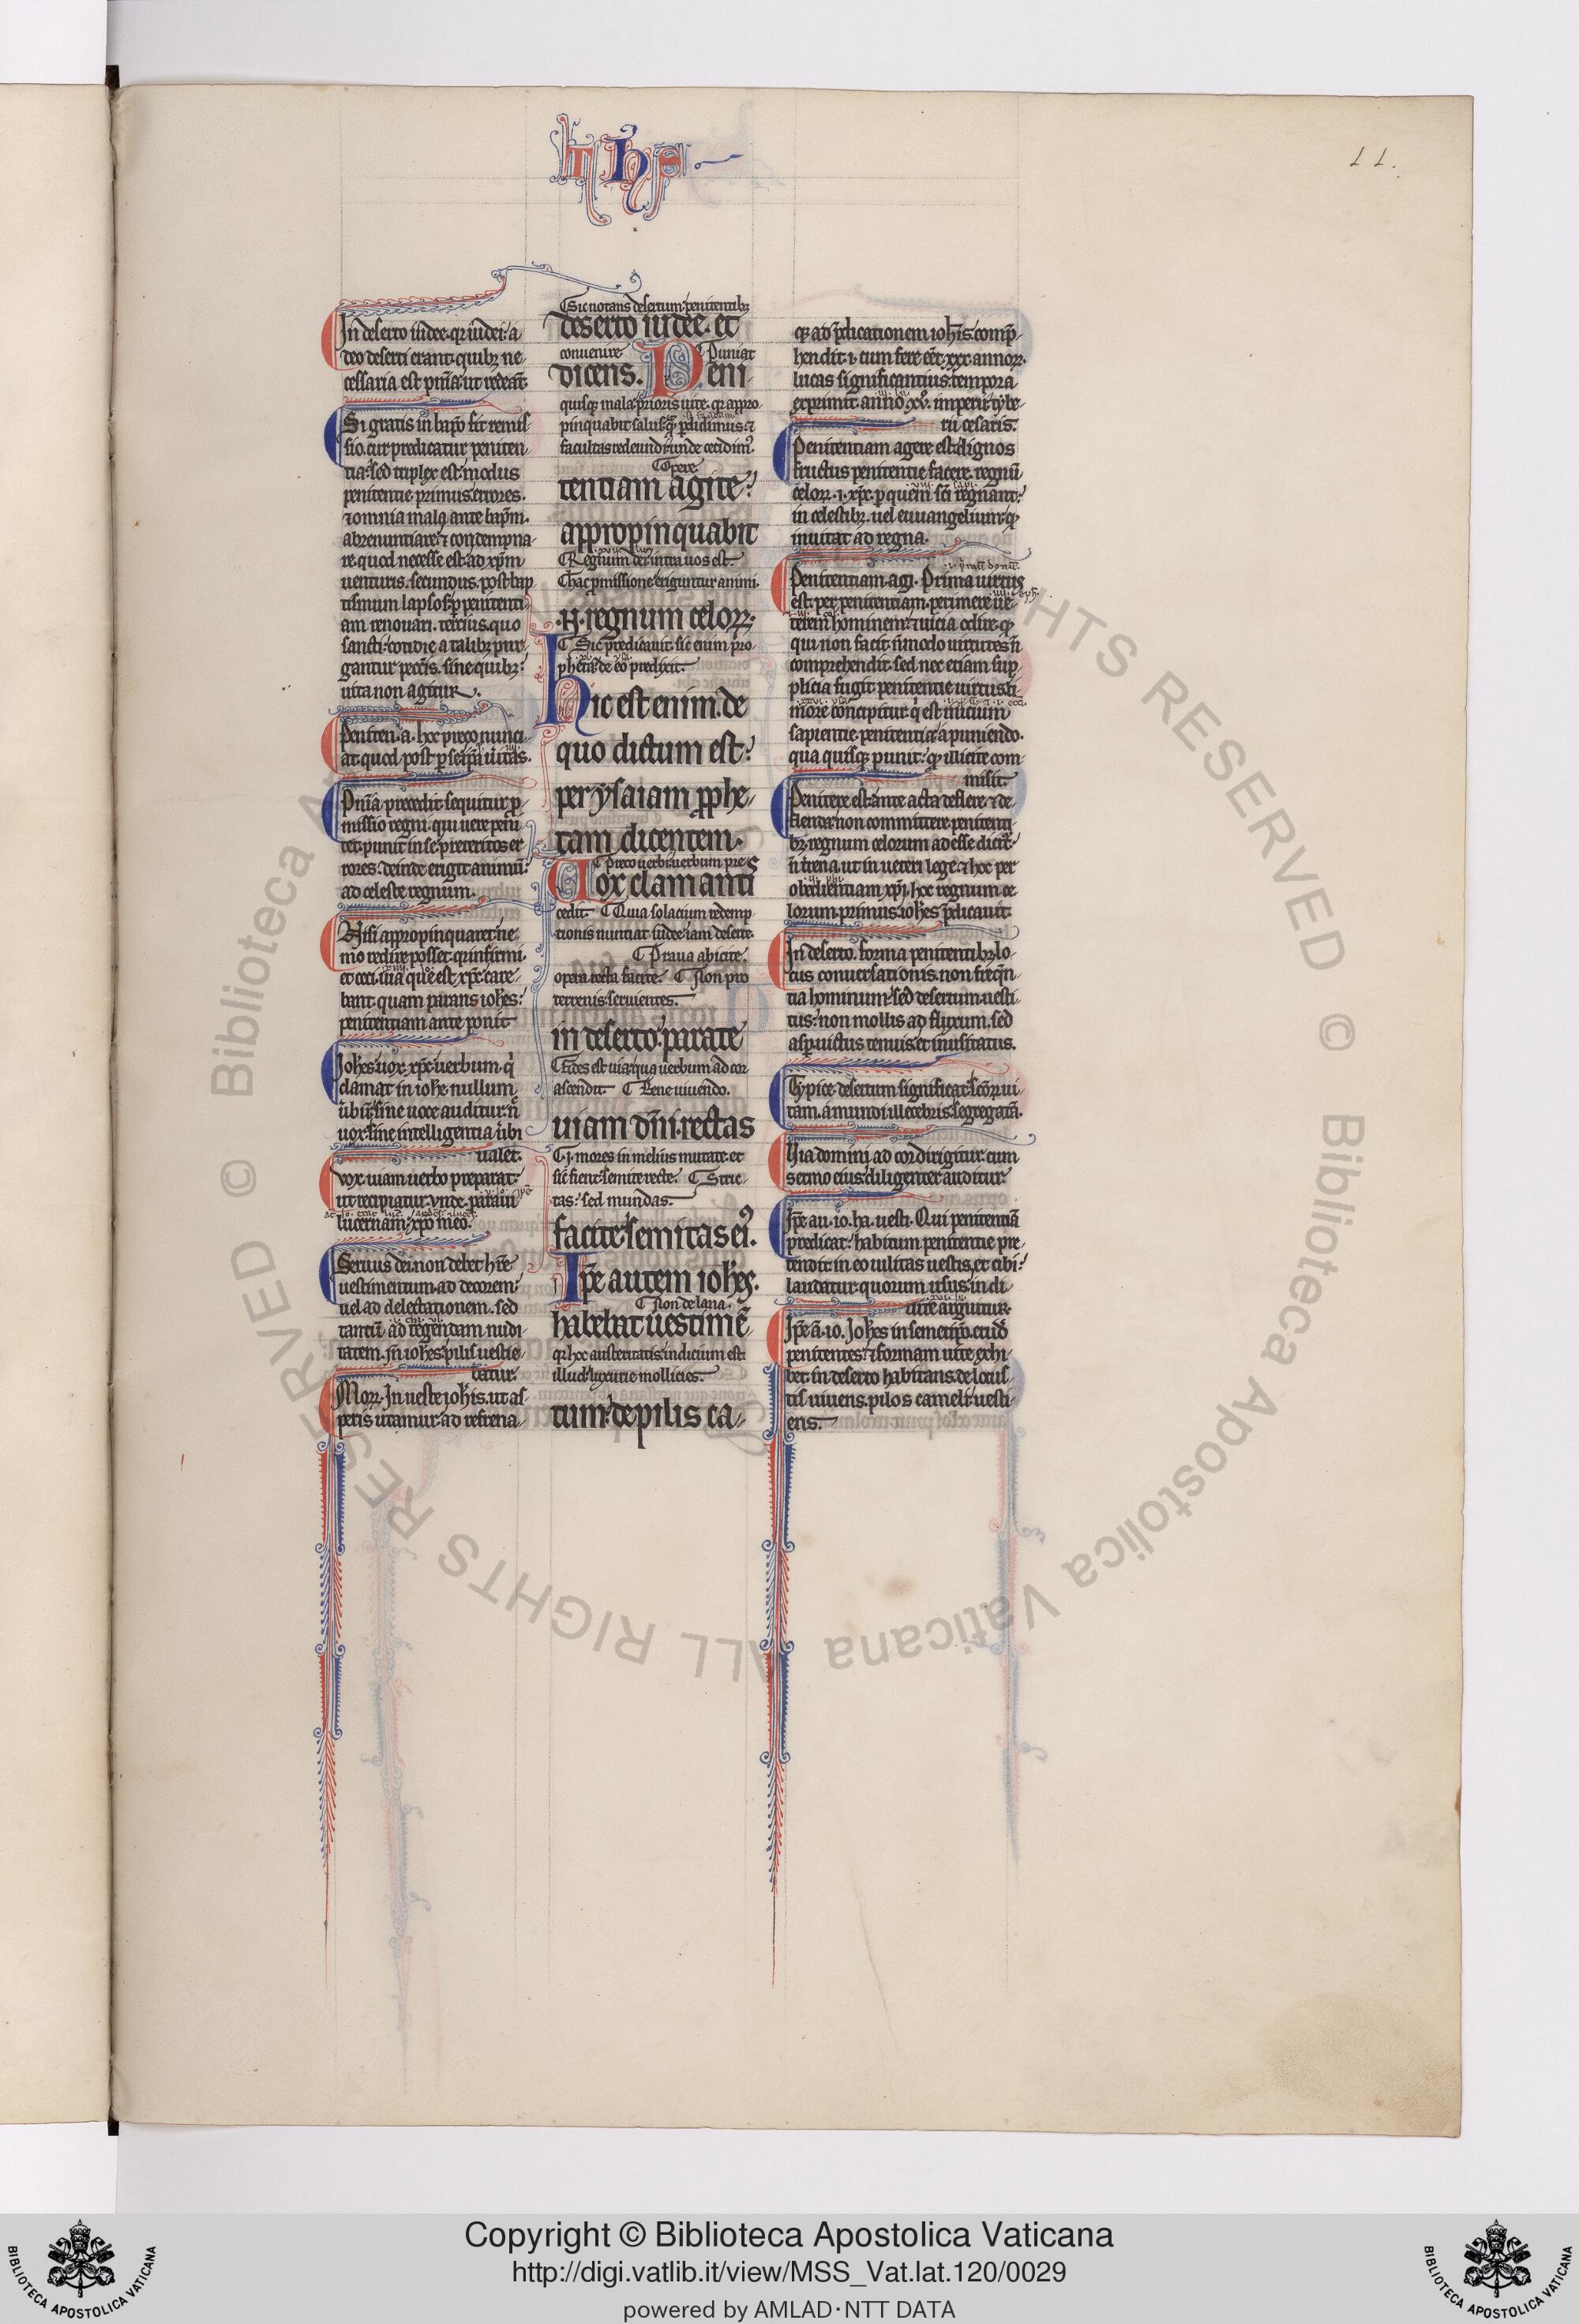 11.
In deserto iudee. qr iudei a
deo deserti erant. quibꝫ ne
cessaria est pnīa. ut redeāt
Si gratis in bapō fit remis
sio. cur predicatur peniten
tia? sed triplex est modus
penitentie. primus. errores.
⁊ omnia mala ante bapm̄.
abrenuntiare. ⁊ condempna
re. quod necesse est ad xpm̄
uenturis. secundus. post bap
tismum lapsos per penitenti
am renouari. tertius. quo
sancti cotidie a talibꝫ pur
gantur peccīs. sine quibꝫ
uita non agitur.
Peniten. a. hoc preco nunci
at. quod post p seipā ueritas.
Pnīa precedit. sequitur p
missio regni. qui uere peni
tet. punit in se preteritos er
rores. deinde erigit animū
ad celeste regnum.
Nisi appropinquaret. ne
mo redire posset. qr infirmi
et ceci. uia que est xpc̄ care
bant. quam parans ioh̄es
penitentiam ante ponit
Ioh̄es uox. xpc̄ uerbum. qͥ
clamat in ioh̄e. nullum
ūbū sine uoce auditur. nͨ
uox sine intelligentia ūbi
ualet.
Vox uiam uerbo preparat
ut recipiatur. vnde. paraui
lucernam xpō meo.
Seruus dei non debet hr̄e
uestimentum ad decorem
uel ad delectationem. sed
tantū ad tegendam nudi
tatem. In ioh̄es pilis uestie
batur.
Morꝝ. In ueste ioh̄is. ut as
peris utamur. ad refrena
Sic notans desertum. penitentibꝫ
deserto iudee. et
conuenire Puniat
dicens. Peni
quisqꝫ mala prioris uite. qr appro
pinquabit salus qͣ perdidimus. ⁊
facultas redeundi. unde cecidimꝰ.
Opere
tentiam agite
appropinquabit
Regnum dei intra uos est.
Hac pmissione eriguntur animi.
.n̄. regnum celorꝝ.
Sic predicauit. sic enim pro
pheta de eo predixit.
Hic est enim. de
quo dictum est
per ysaiam pphe
tam dicentem.
Preco uerbi. uerbum pre
Vox clamantis
cedit Quia solacium redemp
tionis nuntiat iudee iam deserte.
Praua abicite.
opera recta facite. Non pro
terrenis seruientes.
in deserto. parate
Fides est uia. qua uerbum ad cor
ascendit Bene uiuendo.
uiam dn̄i. rectas
.i. mores in melius mutate. et
sic fient semite recte. Stric
tas. sed mundas.
facite semitas eiꝰ.
Ipse autem ioh̄es.
Non de lana.
habebat uestimē
qr hoc austeritatis indicium est
illud luxurie mollicies.
tum de pilis ca
qꝫ ad pdicationem ioh̄is. comp̄
hendit. i. cum fere eēt. xxx annorꝝ.
lucas significantius tempora
exprimit. anno. xv. imperii tybe
rii cesaris.
Penitentiam agere est dignos
fructus penitentie facere. regnū
celorꝝ. i. xpc̄. per quem sc̄i regnant
in celestibꝫ. uel euuangelium. qd
inuitat ad regna.
Penitentiam. agi. Prima uirtus
est. per penitentiam. perimere ue
terem hominem. ⁊ uicia odire. qd
qui non facit n̄ modo uirtutes n̄
comprehendit. sed nec etiam sup
plicia fugit. penitentie uirtus ti
more concipitur. qͥ est inicium
sapientie. penitentia a puniendo.
qua quisqꝫ punit. qd illicite com
misit
Penitere est ante acta deflere. ⁊ de
flenda non committere. penitenti
bꝫ. regnum celorum adesse dicit.
n̄ terrena. ut in ueteri lege. ⁊ hoc per
obedientiam xpī. hoc regnum ce
lorum primus ioh̄es pdicauit
In deserto. forma penitentibꝫ. lo
cus conuersationis. non frequen
tia hominum. sed desertum. uesti
tus. non mollis ad fluxum. sed
asp. uictus tenuis. et inusitatus.
Typice desertum significat sc̄orꝝ ui
tam. a mundi illecebris segregatā.
Via domini ad cor dirigitur. cum
sermo eius diligenter auditur
Ipse au. io. ha. uesti. Qui penitentiā
predicat. habitum penitentie pre
tendit. in eo uilitas uestis. et cibi
laudatur. quorum usus in di
uite arguitur.
Ipse a. io. Ioh̄es in semetipō erudit
penitentes. ⁊ formam uite exhi
bet in deserto habitans. de locus
tis uiuens. pilos cameli uesti
ens.
© Biblioteca Apostolica Vaticana ALL RIGHTS RESERVED
Copyright © Biblioteca Apostolica Vaticana
http://digi.vatlib.it/view/MSS_Vat.lat.120/0029
powered by AMLAD·NTT DATA
BIBLIOTECA APOSTOLICA VATICANA
BIBLIOTECA APOSTOLICA VATICANA